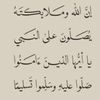 إن الله وملائكته
يصلون على النبي
يا أيها الذين ءامنوا
صلوا عليه وسلموا تسليما